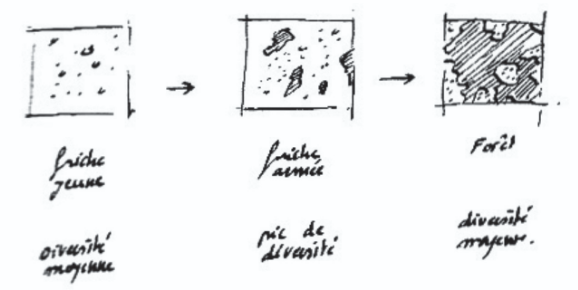 friche
jeune
friche
armée
Forêt
diversité
moyenne
pic de
diversité
diversité
moyenne.